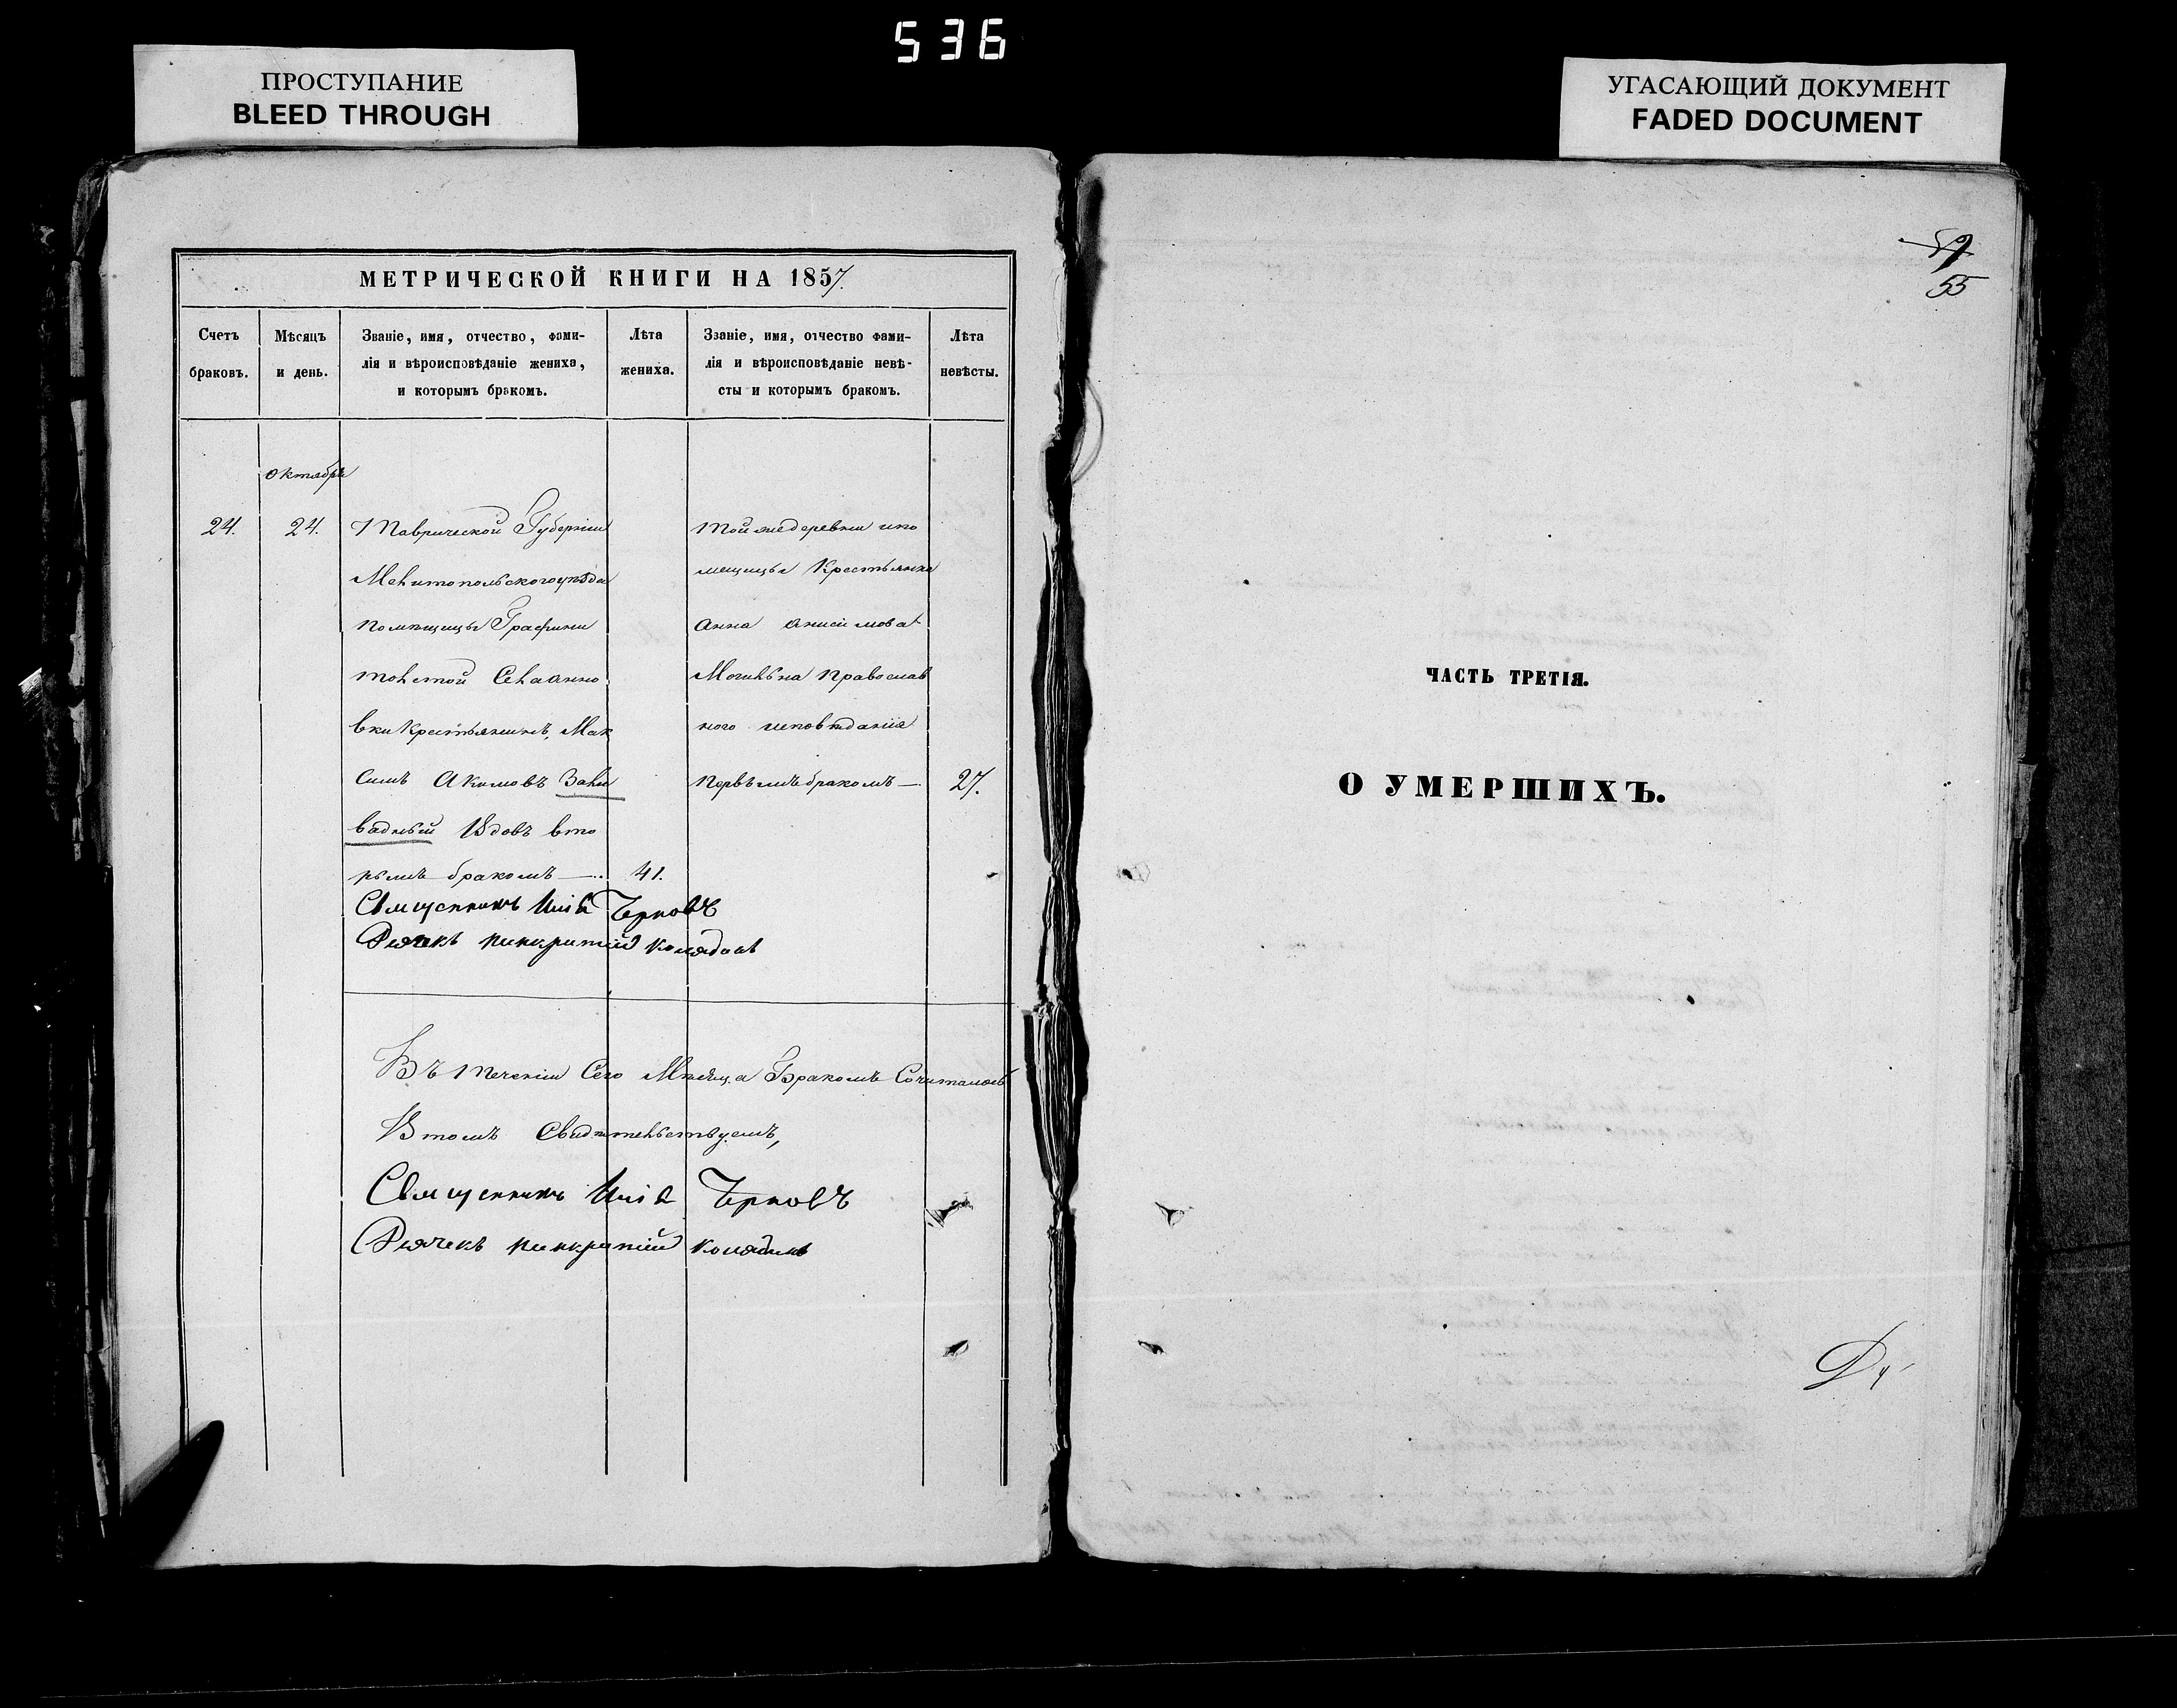 536
ПРОСТУПАНИЕ
BLEED THROUGH
УГАСАЮЩИЙ ДОКУМЕНТ
FADED DOCUMENT
МЕТРИЧЕСКОЙ КНИГИ НА 1857.
Счетъ браковъ.
Мѣсяцъ и день.
Званіе, имя, отчество, фами-
лія и вѣроисповѣданіе жениха,
и которымъ бракомъ.
Лѣта жениха.
Званіе, имя, отчество фами-
лія и вѣроисповѣданіе невѣ-
сты и которымъ бракомъ.
Лѣта невѣсты.
октябрь
24.
24.
Таврической Губерніи
Мелитопольского уѣзда
помѣщицы Графини
толстой Села анно
вки Крестьянинъ, Мак
симъ Акимовъ Зали
вадный Вдовъ вто
рымъ бракомъ —
41.
той же деревни и по
мещицы Крестьянка
анна анисимова
Могильна православ
ного исповѣданія
первымъ бракомъ —
27.
Священникъ Илія Черновъ
Дьячекъ панкратий
Въ теченіи Сего Мѣсяца Бракомъ Сочитались
В томъ Свидѣтельствуемъ,
Священникъ Илія Черновъ
Дьячекъ панкратий
59
55
ЧАСТЬ ТРЕТІЯ.
О УМЕРШИХЪ.